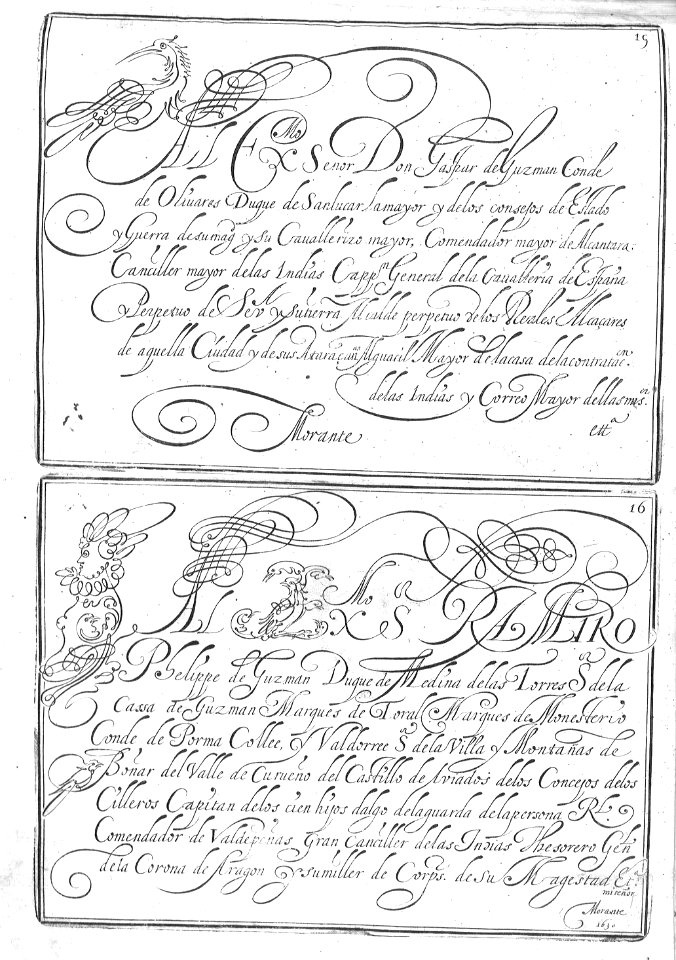 15
AL EX.mo Señor Don Gaspar de Guzman Conde
de Olivares Duque de Sanlucar lamayor y delos consejos de Estado
y Guerra desumag y su Cavallerizo mayor, Comendador mayor de Alcantara,
Canciller mayor delas Indias Cappn General dela Cavalleria de España
y Perpetuo de Seva y sutierra Alcalde perpetuo delos Reales Alcaçares
de aquella Ciudad y desus Ataraçanas Alguacil Mayor de lacasa delacontratac.on
delas Indias y Correo Mayor dellasmis.
ett.a
Morante
16
AL EXmo Sor RAMIRO
Phelippe de Guzman Duque de Medina delas Torres Sor dela
Cassa de Guzman Marques de Toral Marques de Monesterio
Conde de Parma Collee, y Valdorree Sor dela Villa y Montañas de
Boñar del Valle de Curueño del Castillo de Aviados delos Concejos delos
Cilleros Capitan delos cien hijos dalgo delaguarda delapersona RL.
Comendador de Valdepeñas Gran Canciller delas Indias Thesorero Genl
de la Corona de Aragon y sumiller de Corps. de su Magestad Et.a
miseñor
Morante
1630